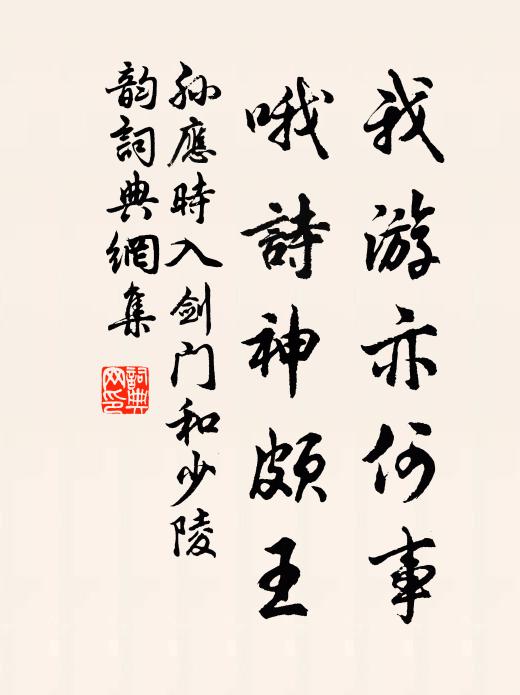 我游亦何事
哦詩神頗王
孙應時入剑门和少陵
韵詞典網集
詞典网印